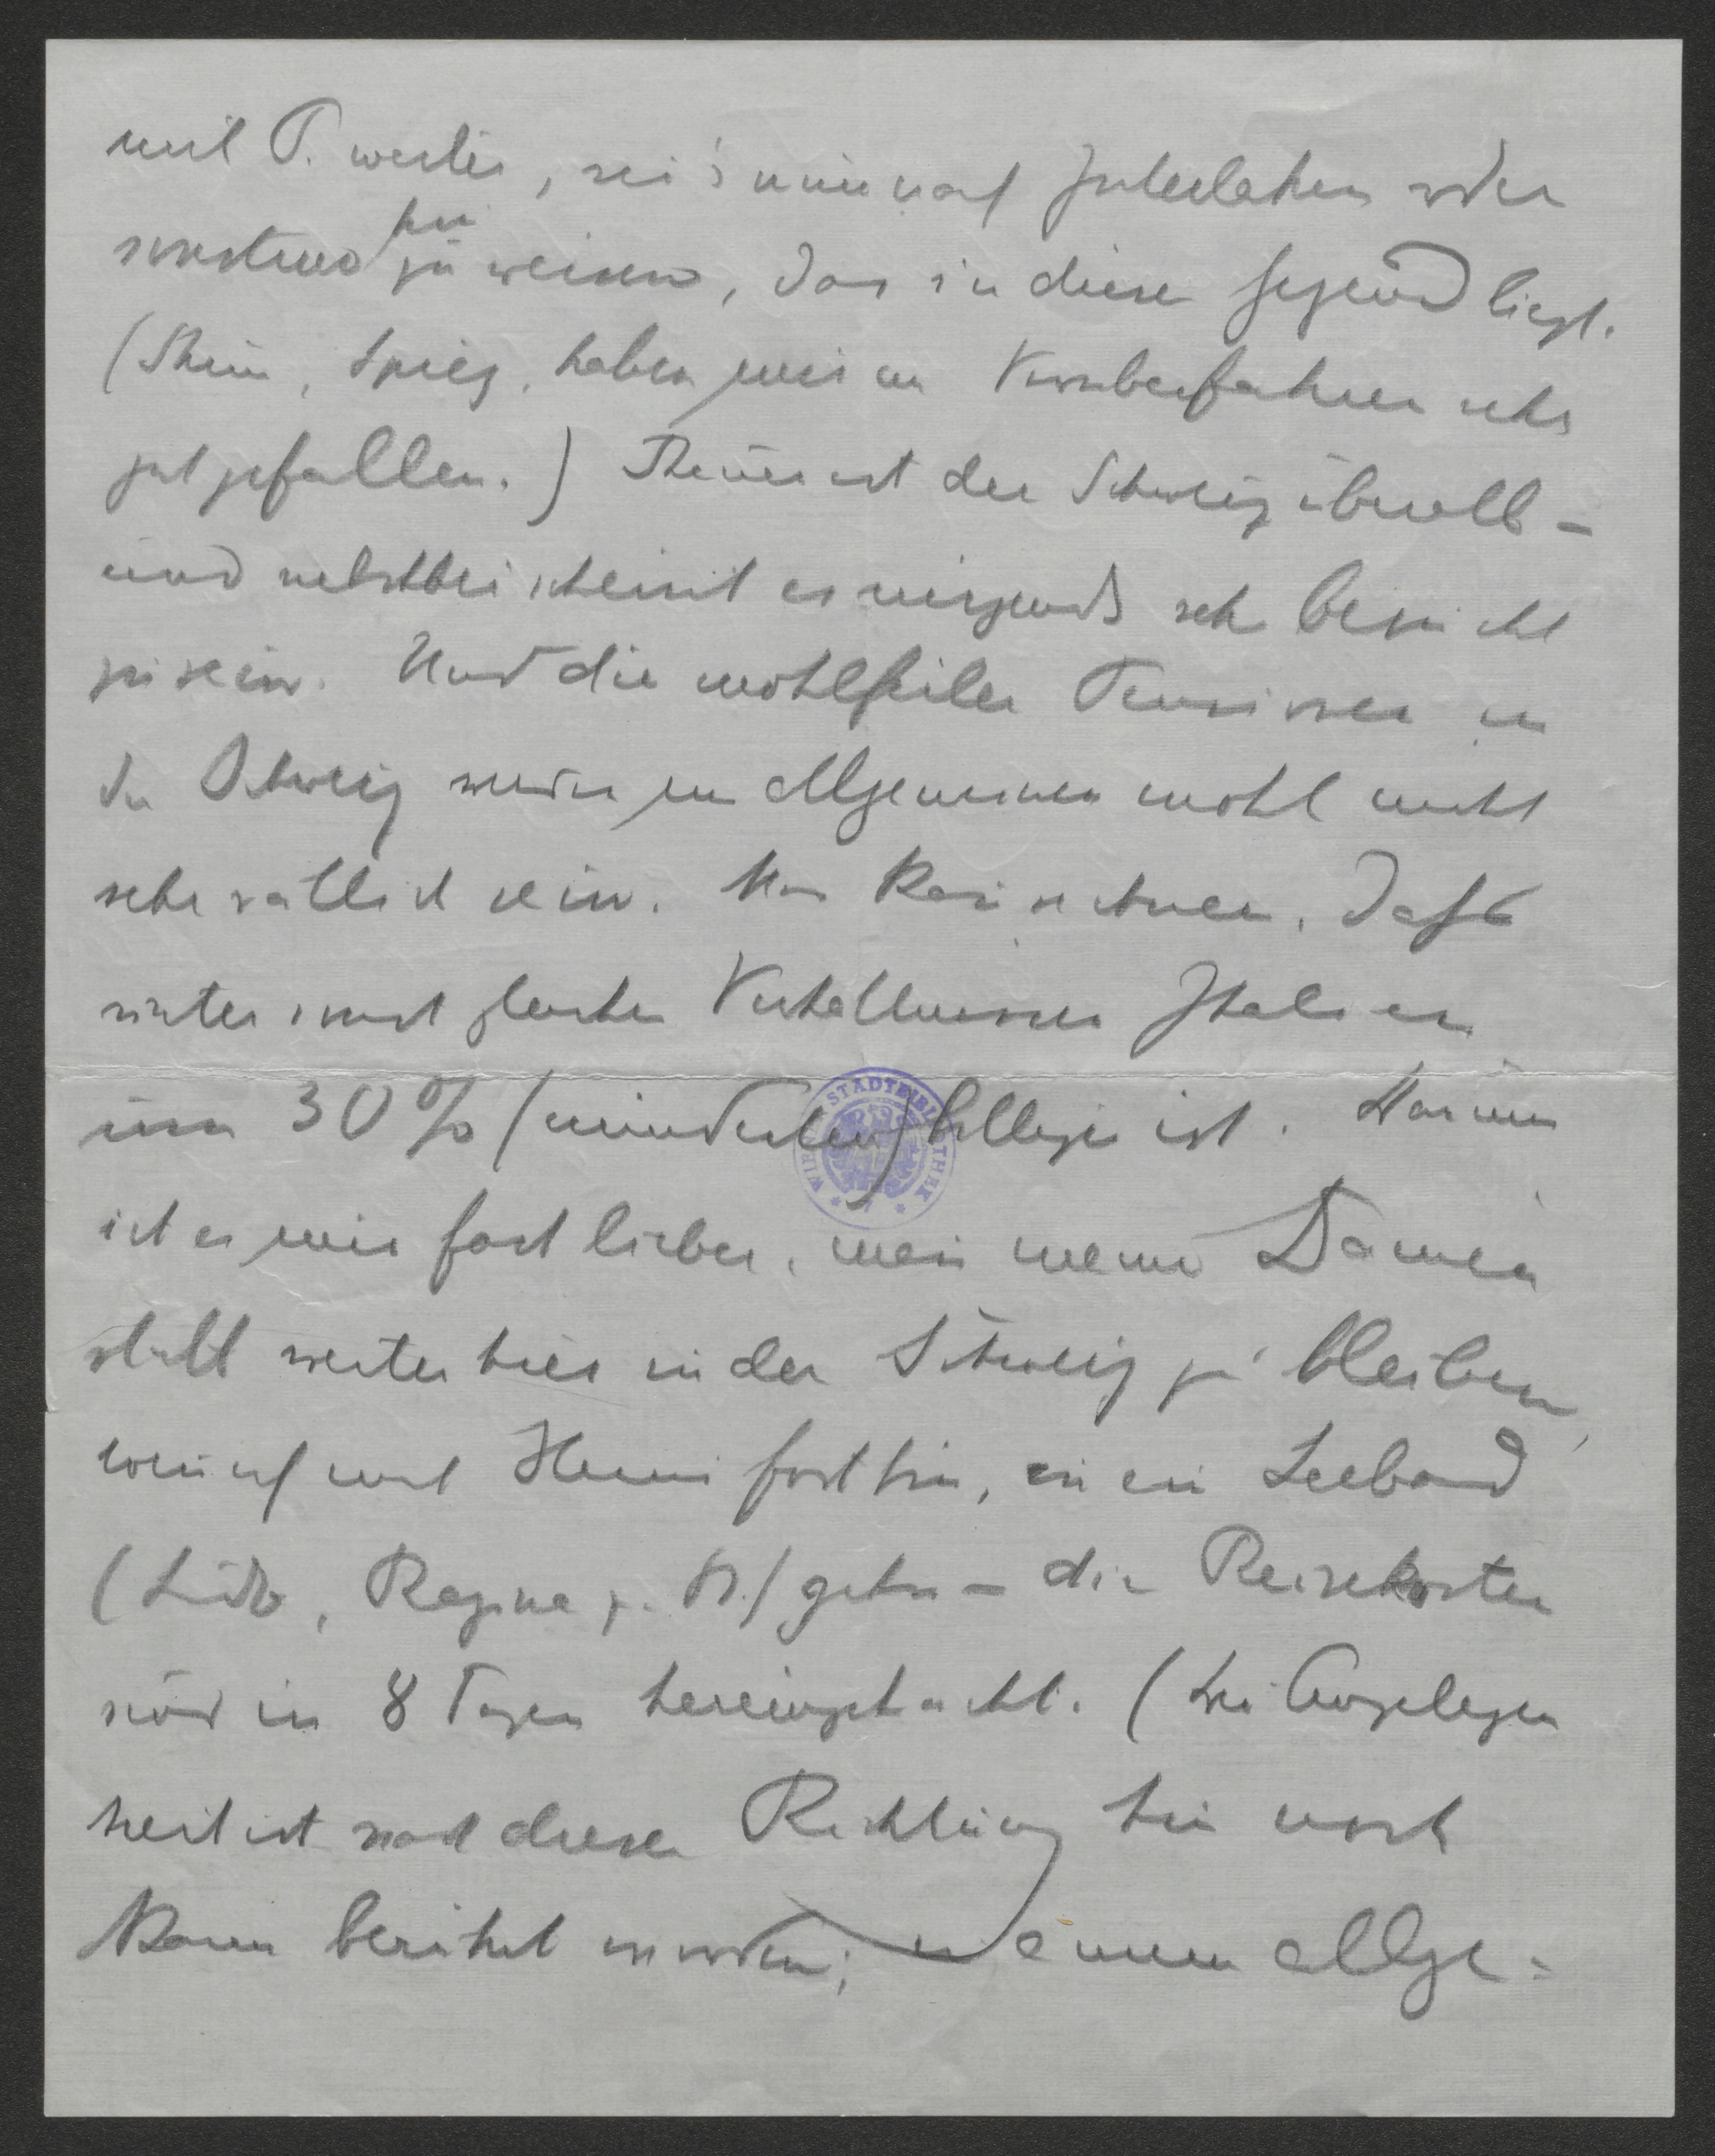 mit P. weiter, sei's nun nach Interlaken oder
sonstwo hin zu reisen, das in dieser Gegend liegt.
(Thun, Spiez, haben mir im Vorüberfahren sehr
gut gefallen.) Theuer ist die Schweiz überall –
und nebstbei scheint es nirgends sehr besucht
zu sein. Und die wohlfeilen Pensionen in
der Schweiz werden im allgemeinen wohl nicht
sehr räthlich sein. Man kann rechnen, dass
unter sonst gleichen Verhältnissen Italien
um 30% (mindestens) billiger ist. Darum
ist es mir fast lieber, wenn meine Damen
statt weiter hier in der Schweiz zu bleiben,
wenn ich mit Heini fort bin, in ein Seebad
(Lido, Ragusa z. B.) gehn – die Reisekosten
sind in 8 Tagen hereingebracht. (Die Angelegen
heit ist nach dieser Richtung hin noch
kaum berührt worden; allge-
WIENER STADTBIBLIOTHEK